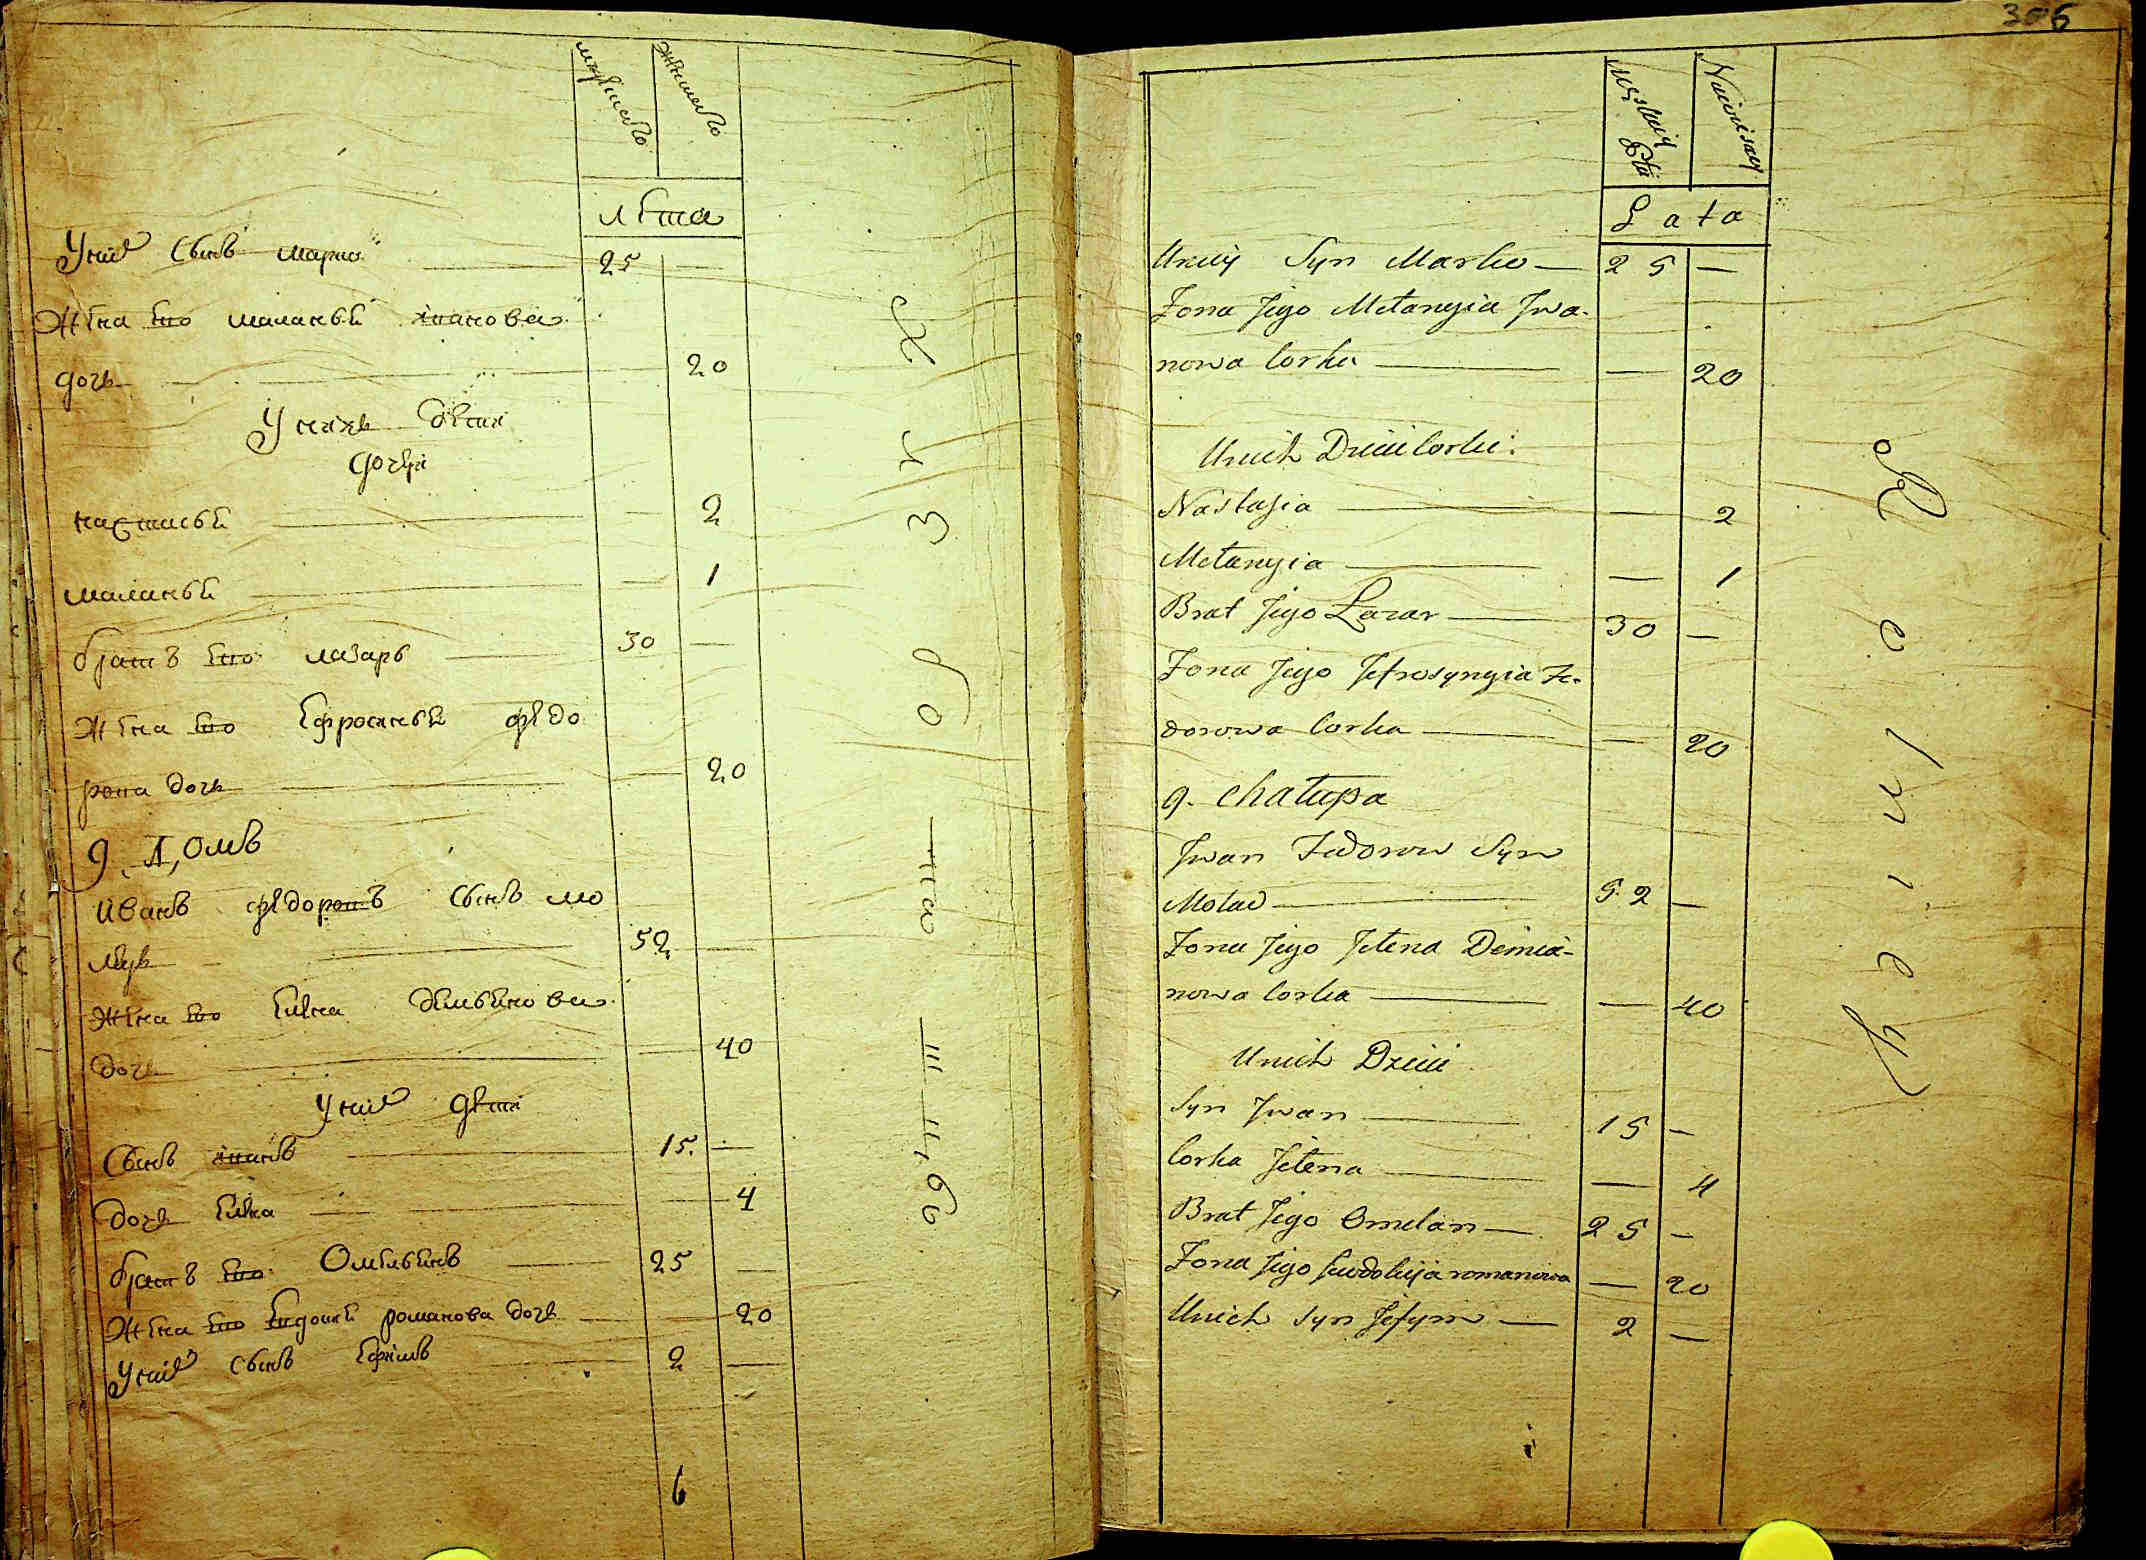 мужеска
женска
Лѣта
Унiе Сынъ марко 25 —
Жена ево маланья иванова
дочь — 20
У нихъ дѣти
дочери
настасья — 2
маланья — 1
братъ ево лазарь 30 —
Жена ево Ефросинья федо
рова дочь — 20
9. Домъ
Иванъ федоровъ Сынъ мо
52 —
Жена ево Елена демьянова
дочь — 40
У ние дѣти
Сынъ иванъ 15. —
дочь Елена — 4
братъ ево Омельянъ 25 —
Жена ево Евдокия романова дочь — 20
У ние Сынъ Ефимъ 2 —
6
Хлѣбо
па
ш
цовъ
306
Męskiey Płci
Niewiescey
Lata
Uniey Syn Marko — 25 —
Zona Jego Melangia Jwa-
nowa Corka — — 20
Unich Dzieci Corki:
Nastasia — — 2
Melangia — — 1
Brat Jego Lazar — 30 —
Zona Jego Jefrosyngia Fe-
dorowa Corka — — 20
9. Chałupa
Jwan Fedorow Syn
52 —
Zona Jego Jelena Demia-
nowa Corka — — 40
Unich Dzieci
Syn Jwan — 15 —
Corka Jelena — — 4
Brat Jego Omelan — 25 —
Zona Jego Jewdokija romanowa — 20
Unich Syn Jefym — 2 —
Rolniey